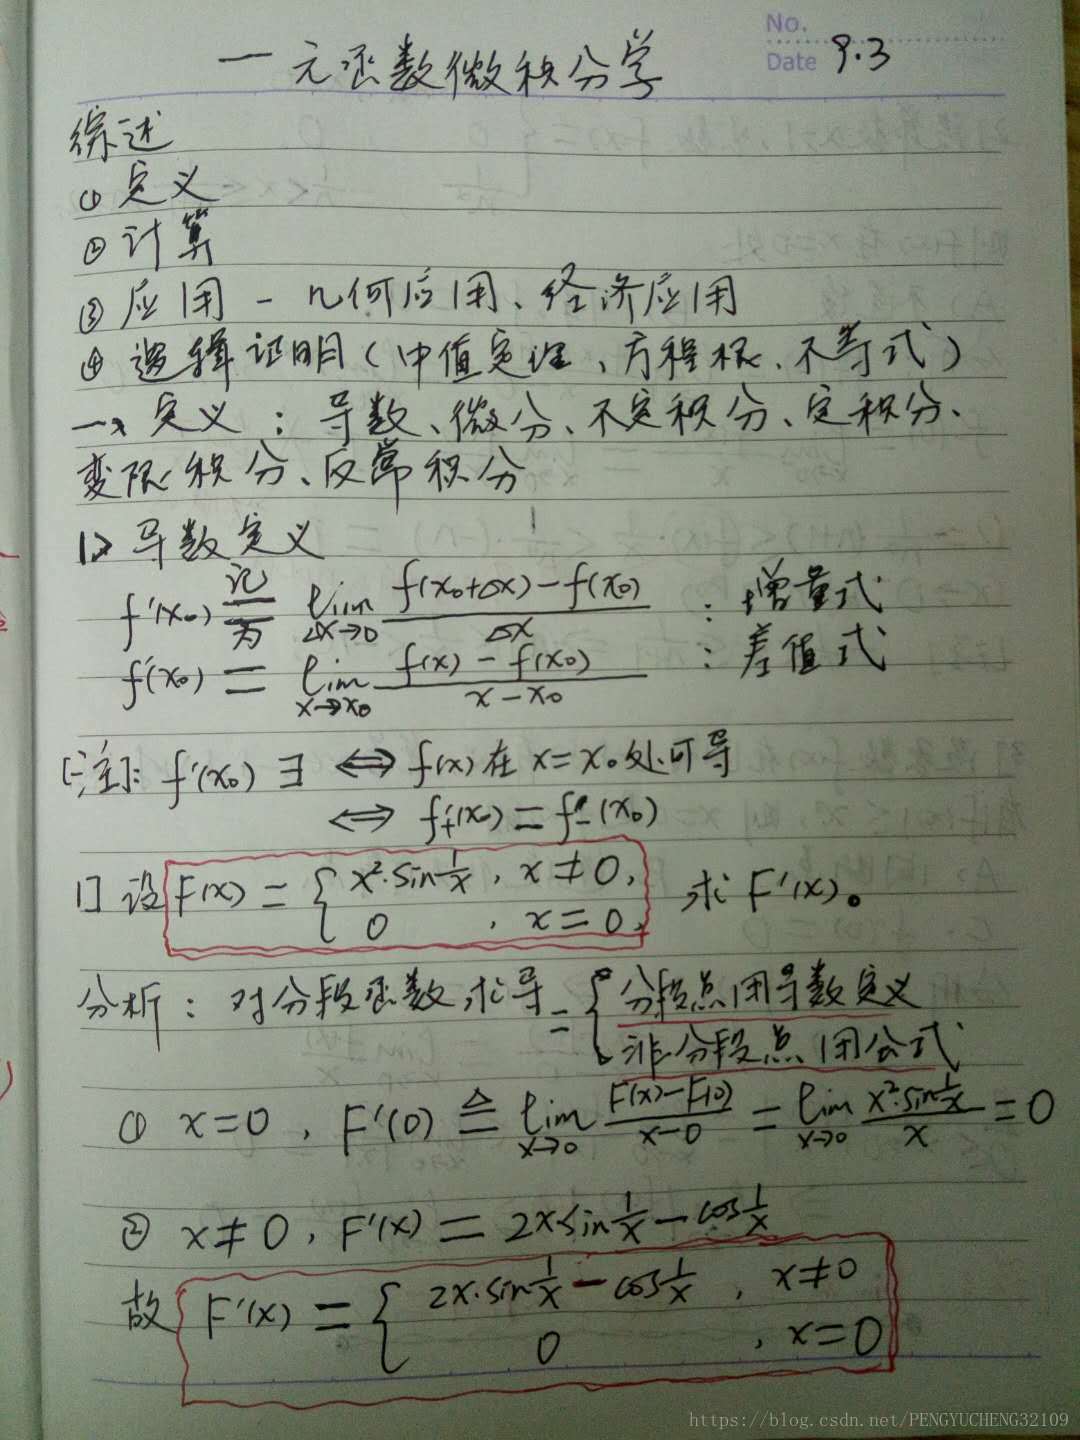 No.
Date 9.3
一元函数微积分学
综述
① 定义
② 计算
③ 应用 - 几何应用、经济应用
④ 逻辑证明(中值定理、方程根、不等式)
一、定义:导数、微分、不定积分、定积分、
变限积分、反常积分
1> 导数定义
f'(x₀) 记为 lim Δx→0 (f(x₀+Δx)-f(x₀))/Δx :增量式
f'(x₀) = lim x→x₀ (f(x)-f(x₀))/(x-x₀) :差值式
[注]: f'(x₀) ∃ ⟺ f(x)在x=x₀处可导
⟺ f'₊(x₀) = f'₋(x₀)
1] 设 F(x) = { x²·sin 1/x , x≠0, 求 F'(x)。
0 , x=0,
分析:对分段函数求导 = { 分段点用导数定义
非分段点用公式
① x=0 , F'(0) ≜ lim x→0 (F(x)-F(0))/(x-0) = lim x→0 (x²·sin 1/x)/x = 0
② x≠0 , F'(x) = 2x sin 1/x - cos 1/x
故 F'(x) = { 2x·sin 1/x - cos 1/x , x≠0
0 , x=0
https://blog.csdn.net/PENGYUCHENG32109